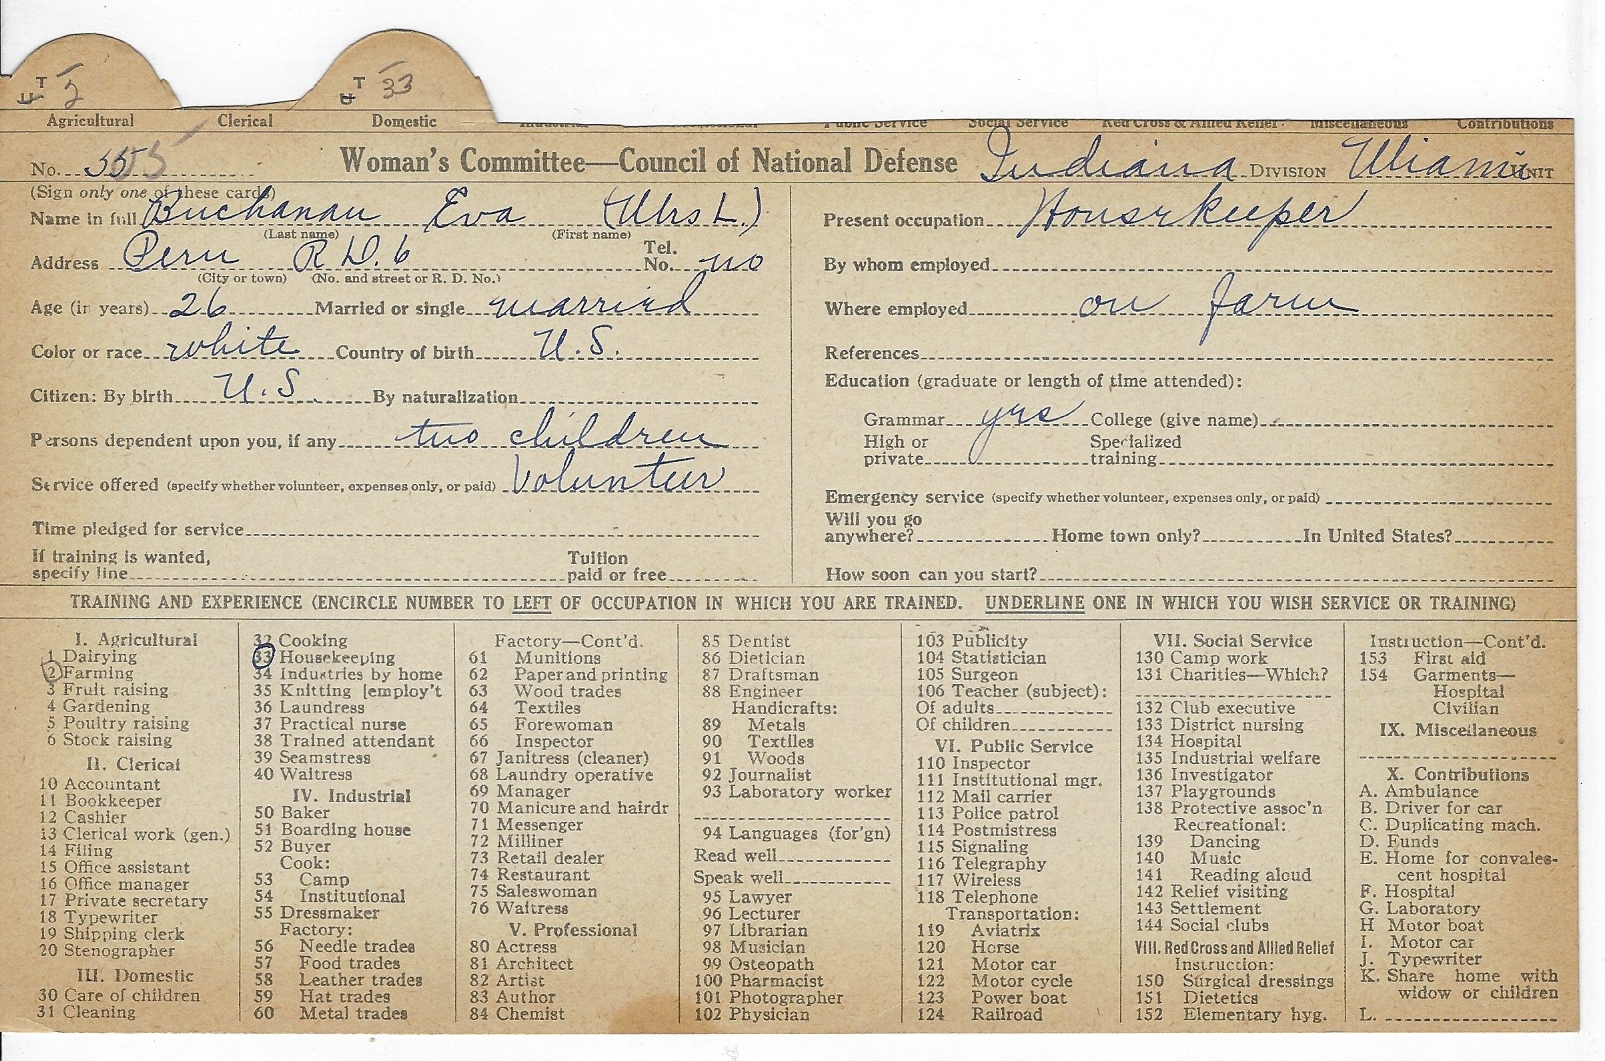 T 2
T 33
Agricultural Clerical Domestic Public Service Social Service Red Cross & Allied Relief Miscellaneous Contributions
No. 5555 Woman's Committee—Council of National Defense Indiana DIVISION Miami UNIT
(Sign only one of these cards)
Name in full Buchanan Eva (Mrs L.)
(Last name) (First name)
Address Peru R.D. 6 Tel. No. no
(City or town) (No. and street or R. D. No.)
Age (in years) 26 Married or single married
Color or race white Country of birth U.S.
Citizen: By birth U.S. By naturalization
Persons dependent upon you, if any two children
Service offered (specify whether volunteer, expenses only, or paid) Volunteer
Time pledged for service
If training is wanted, specify line Tuition paid or free
Present occupation Housekeeper
By whom employed
Where employed on farm
References
Education (graduate or length of time attended):
Grammar yrs College (give name)
High or private Specialized training
Emergency service (specify whether volunteer, expenses only, or paid)
Will you go anywhere? Home town only? In United States?
How soon can you start?
TRAINING AND EXPERIENCE (ENCIRCLE NUMBER TO LEFT OF OCCUPATION IN WHICH YOU ARE TRAINED. UNDERLINE ONE IN WHICH YOU WISH SERVICE OR TRAINING)
I. Agricultural
1 Dairying
2 Farming
3 Fruit raising
4 Gardening
5 Poultry raising
6 Stock raising
II. Clerical
10 Accountant
11 Bookkeeper
12 Cashier
13 Clerical work (gen.)
14 Filing
15 Office assistant
16 Office manager
17 Private secretary
18 Typewriter
19 Shipping clerk
20 Stenographer
III. Domestic
30 Care of children
31 Cleaning
32 Cooking
33 Housekeeping
34 Industries by home
35 Knitting [employ't
36 Laundress
37 Practical nurse
38 Trained attendant
39 Seamstress
40 Waitress
IV. Industrial
50 Baker
51 Boarding house
52 Buyer
Cook:
53 Camp
54 Institutional
55 Dressmaker
Factory:
56 Needle trades
57 Food trades
58 Leather trades
59 Hat trades
60 Metal trades
Factory—Cont'd.
61 Munitions
62 Paper and printing
63 Wood trades
64 Textiles
65 Forewoman
66 Inspector
67 Janitress (cleaner)
68 Laundry operative
69 Manager
70 Manicure and hairdr
71 Messenger
72 Milliner
73 Retail dealer
74 Restaurant
75 Saleswoman
76 Waitress
V. Professional
80 Actress
81 Architect
82 Artist
83 Author
84 Chemist
85 Dentist
86 Dietician
87 Draftsman
88 Engineer
Handicrafts:
89 Metals
90 Textiles
91 Woods
92 Journalist
93 Laboratory worker
94 Languages (for'gn)
Read well
Speak well
95 Lawyer
96 Lecturer
97 Librarian
98 Musician
99 Osteopath
100 Pharmacist
101 Photographer
102 Physician
103 Publicity
104 Statistician
105 Surgeon
106 Teacher (subject):
Of adults
Of children
VI. Public Service
110 Inspector
111 Institutional mgr.
112 Mail carrier
113 Police patrol
114 Postmistress
115 Signaling
116 Telegraphy
117 Wireless
118 Telephone
Transportation:
119 Aviatrix
120 Horse
121 Motor car
122 Motor cycle
123 Power boat
124 Railroad
VII. Social Service
130 Camp work
131 Charities—Which?
132 Club executive
133 District nursing
134 Hospital
135 Industrial welfare
136 Investigator
137 Playgrounds
138 Protective assoc'n
Recreational:
139 Dancing
140 Music
141 Reading aloud
142 Relief visiting
143 Settlement
144 Social clubs
VIII. Red Cross and Allied Relief
Instruction:
150 Surgical dressings
151 Dietetics
152 Elementary hyg.
Instruction—Cont'd.
153 First aid
154 Garments—
Hospital
Civilian
IX. Miscellaneous
X. Contributions
A. Ambulance
B. Driver for car
C. Duplicating mach.
D. Funds
E. Home for convales-
cent hospital
F. Hospital
G. Laboratory
H Motor boat
I. Motor car
J. Typewriter
K. Share home with
widow or children
L.